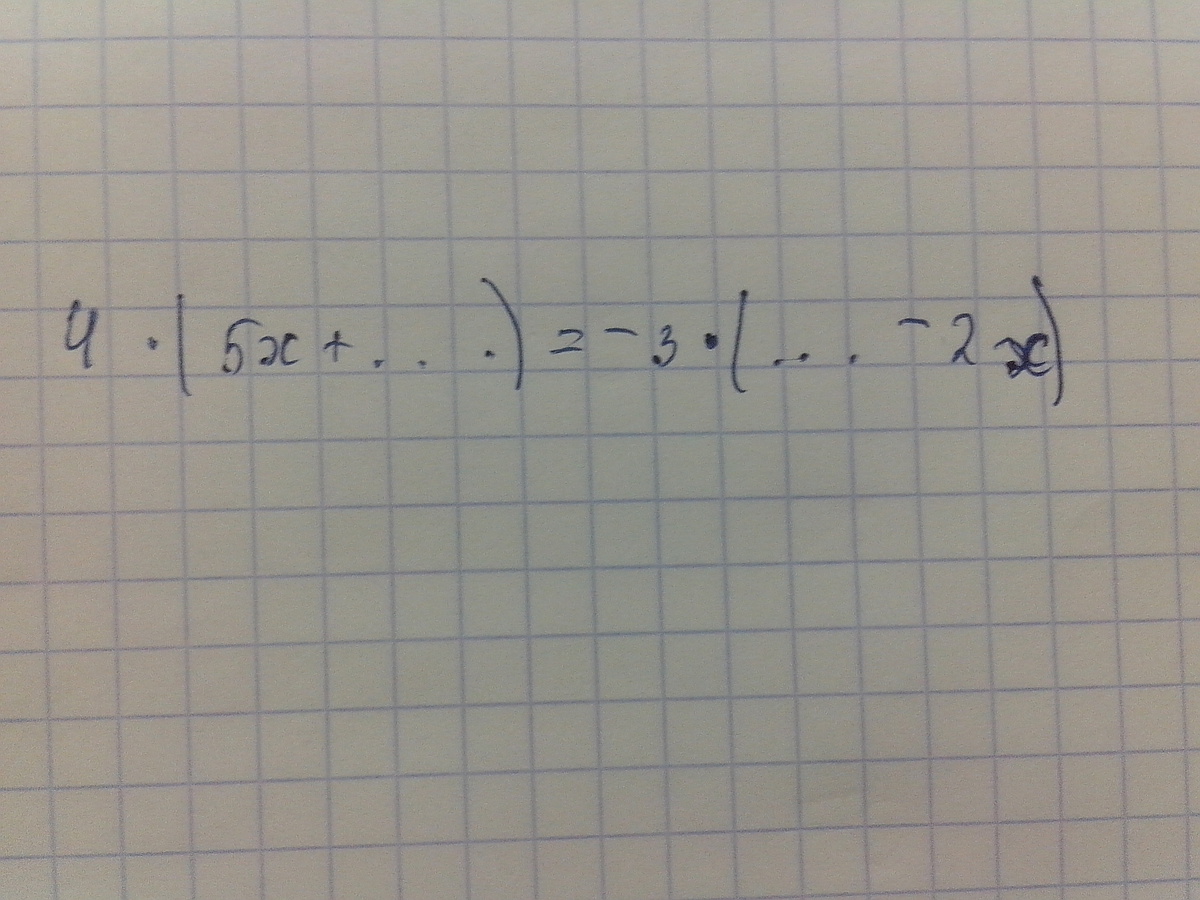 4 · (5x + . . .) = -3 · (... -2x)